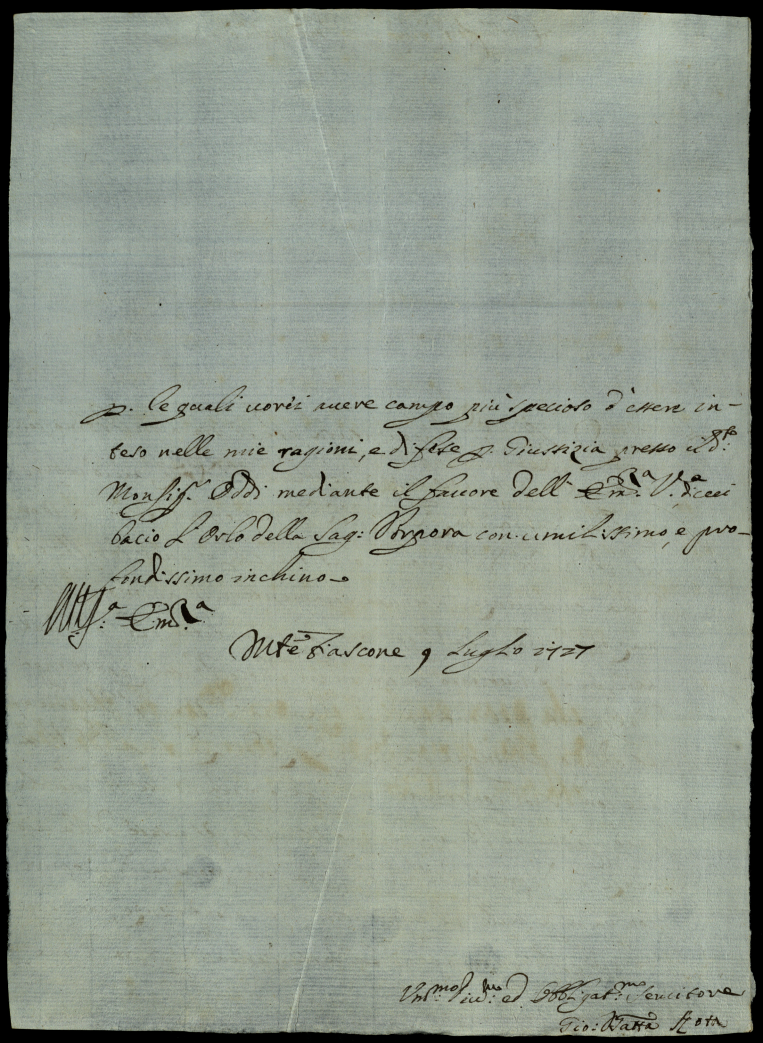 p. le quali vorei avere campo più specioso d'essere in-
teso nelle mie ragioni, e difese p. Giustizia presso il d:to
Monsig.r Oddi mediante il favore dell' Em:a V.a, di cui
bacio L'Orlo della Sag: Porpora con umilissimo, e pro-
fondissimo inchino
Em:a
Mte Fiascone 9 Luglio 1727
Um:mo Div:mo ed Obbligat:mo Servitore
Gio: Batta Rota